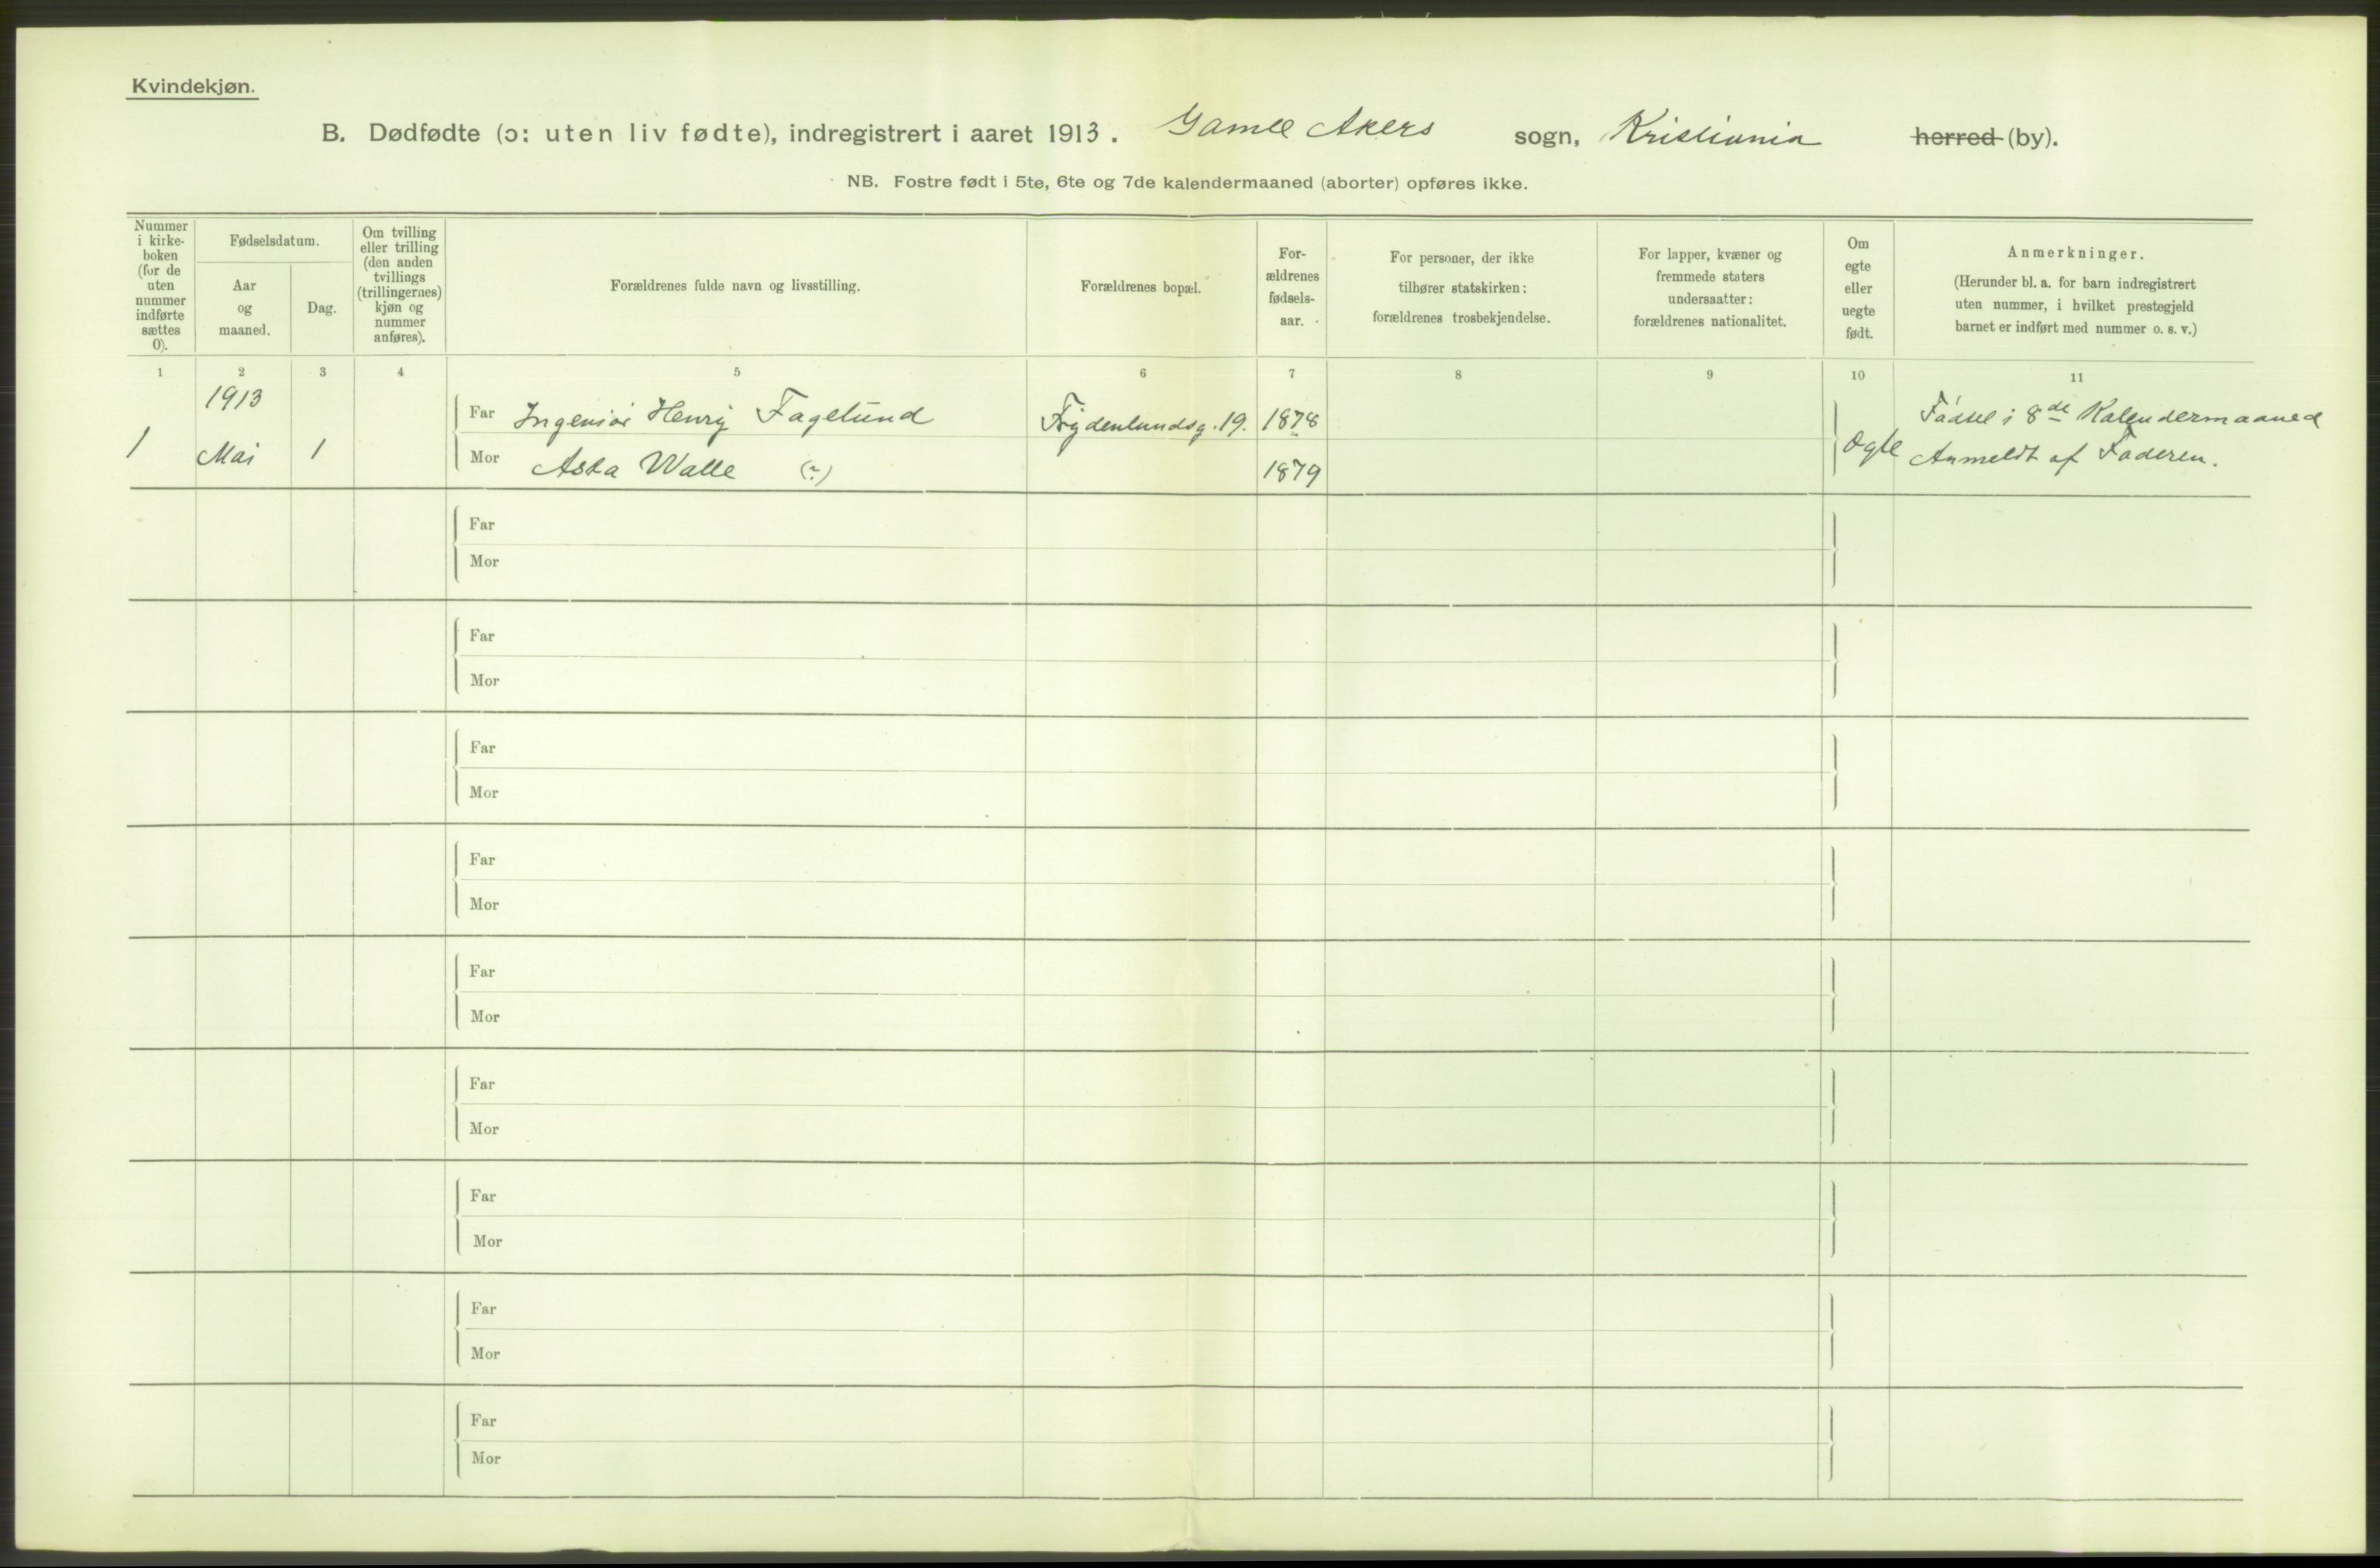 Kvindekjøn.
B. Dødfødte (ɔ: uten liv fødte), indregistrert i aaret 1913. Gamle Akers sogn, Kristiania herred (by).
NB. Fostre født i 5te, 6te og 7de kalendermaaned (aborter) opføres ikke.
Nummer
i kirke-
boken
(for de
uten
nummer
indførte
sættes
0).
Fødselsdatum.
Aar
og
maaned.
Dag.
Om tvilling
eller trilling
(den anden
tvillings
(trillingernes)
kjøn og
nummer
anføres).
Forældrenes fulde navn og livsstilling.
Forældrenes bopæl.
For-
ældrenes
fødsels-
aar.
For personer, der ikke
tilhører statskirken:
forældrenes trosbekjendelse.
For lapper, kvæner og
fremmede staters
undersaatter:
forældrenes nationalitet.
Om
egte
eller
uegte
født.
Anmerkninger.
(Herunder bl. a. for barn indregistrert
uten nummer, i hvilket prestegjeld
barnet er indført med nummer o. s. v.)
1 2 3 4 5 6 7 8 9 10 11
1913
Far Ingeniør Henry Fagelund Frydenlundsg. 19. 1878 Fødsel i 8de Kalendermaaned
1 Mai 1 Mor Asta Walle (?) 1879 Ogte Anmeldt af Faderen.
Far
Mor
Far
Mor
Far
Mor
Far
Mor
Far
Mor
Far
Mor
Far
Mor
Far
Mor
Far
Mor